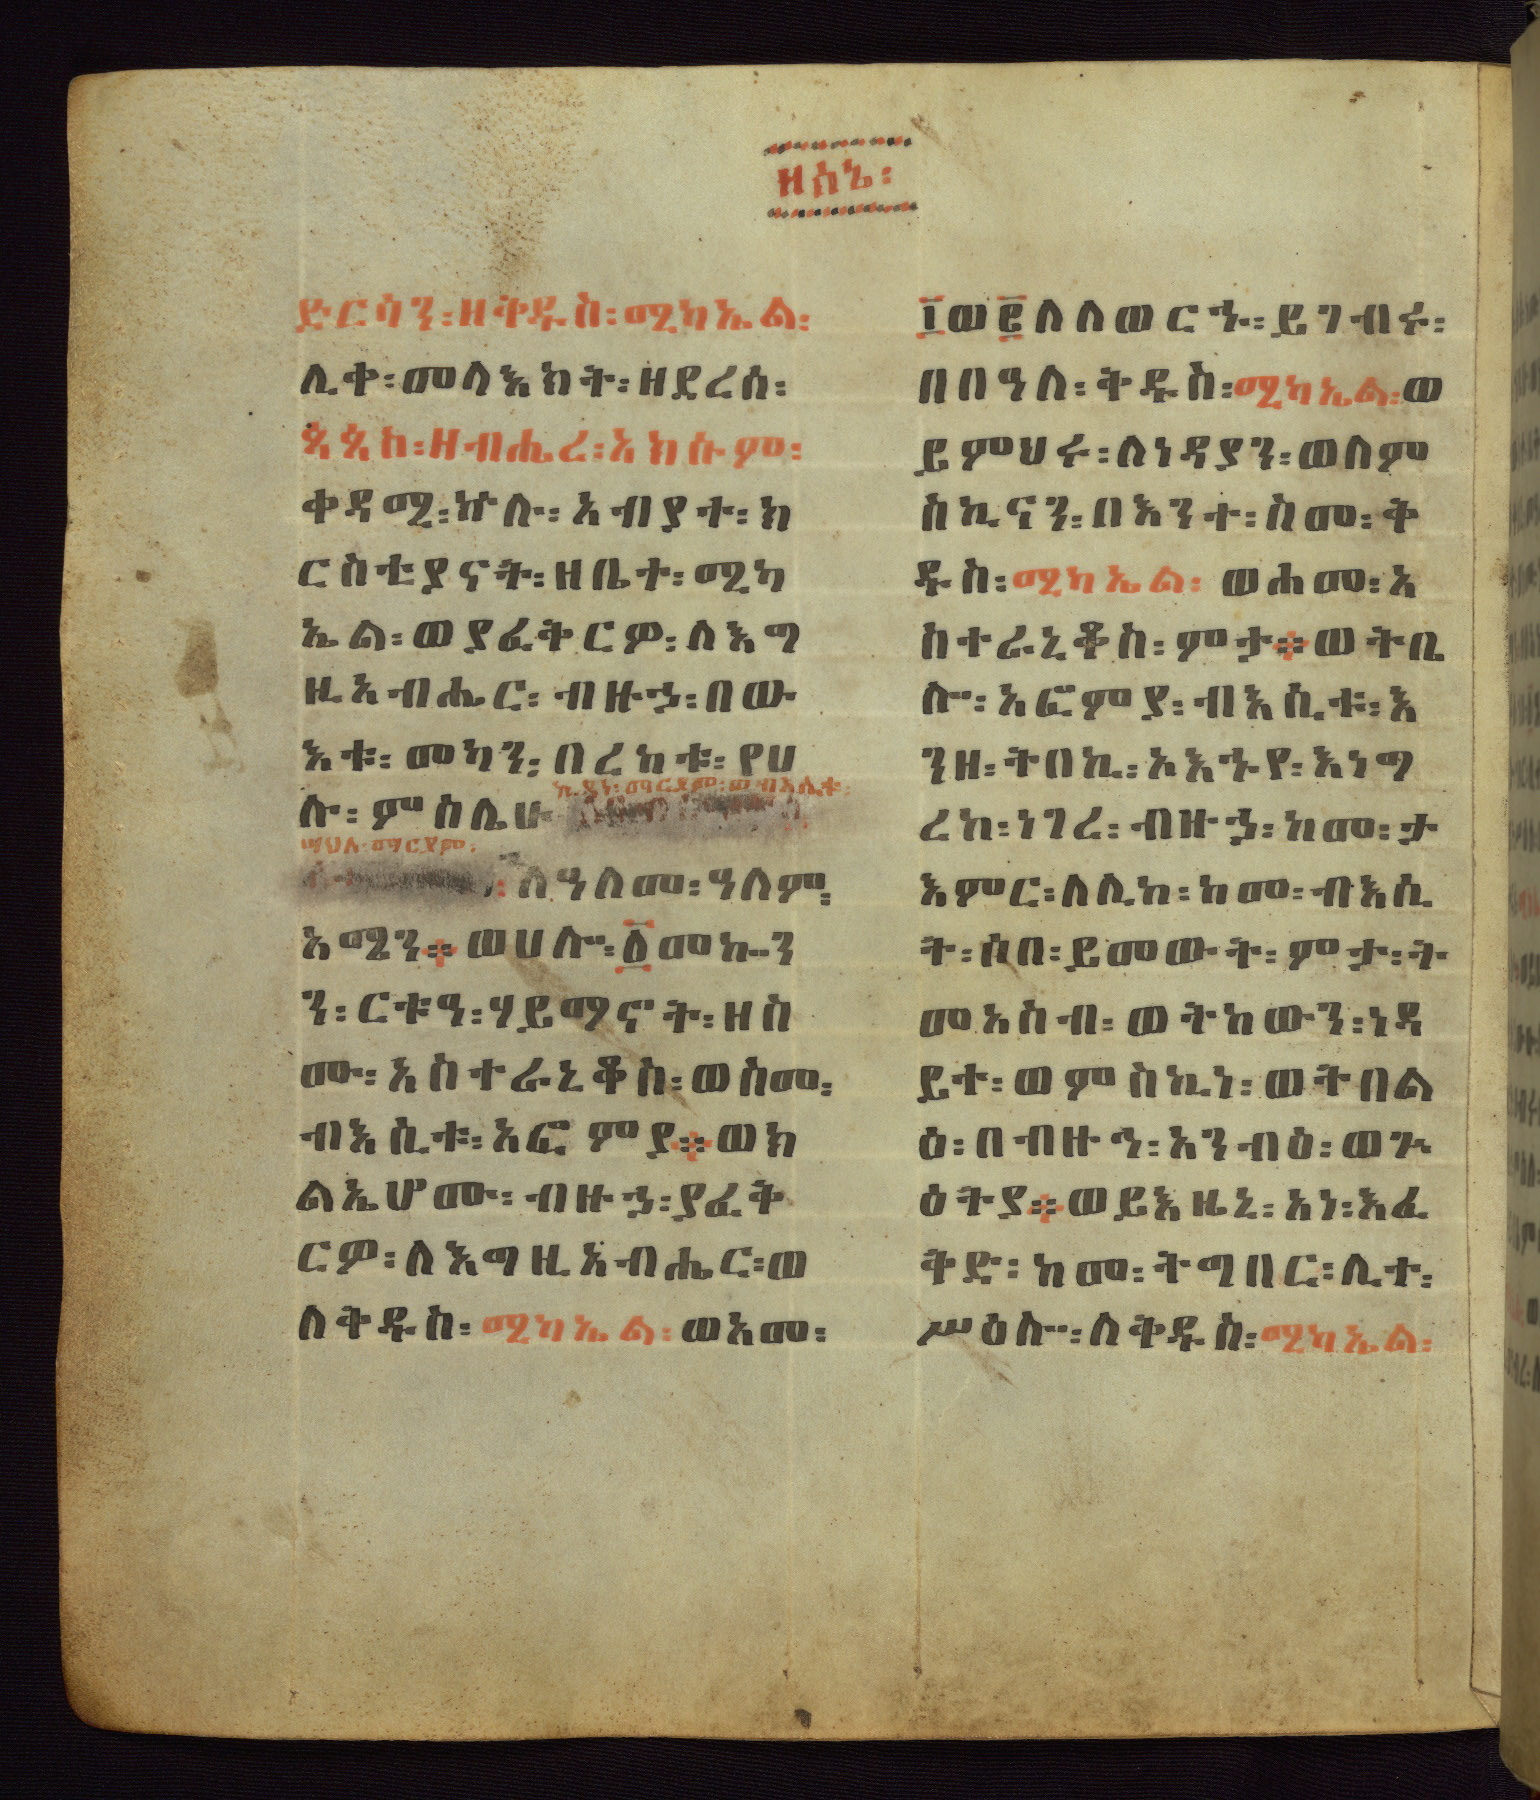 ዘሰኔ፡
ድርሳን፡ዘቅዱስ፡ሚካኤል፡
ሊቀ፡መላእክት፡ዘደረሰ፡
ጳጳስ፡ዘብሔረ፡አክሱም፡
ቀዳሚ፡ኵሉ፡አብያተ፡ክ
ርስቲያናት፡ዘቤተ፡ሚካ
ኤል፡ወያፈቅርዎ፡ለእግ
ዚአብሔር፡ብዙኃ፡በው
እቱ፡መካን፡በረከቱ፡የሀ
ኪዳነ፡ማርያም፡ወብእሲቱ፡
ሉ፡ምስሌሁ
ሣህለ፡ማርያም፡
ለዓለመ፡ዓለም፡
አሜን።ወሀሎ፡፩መኰን
ን፡ርቱዓ፡ሃይማኖት፡ዘስ
ሙ፡አስተራኒቆስ፡ወስመ፡
ብእሲቱ፡አፎምያ።ወክ
ልኤሆሙ፡ብዙኃ፡ያፈቅ
ርዎ፡ለእግዚአብሔር፡ወ
ለቅዱስ፡ሚካኤል፡ወአመ፡
፲ወ፪ለለወርኁ፡ይገብሩ፡
በበዓለ፡ቅዱስ፡ሚካኤል፡ወ
ይምህሩ፡ለነዳያን፡ወለም
ስኪናን፡በእንተ፡ስመ፡ቅ
ዱስ፡ሚካኤል፡ወሐመ፡አ
ስተራኒቆስ፡ምታ።ወትቢ
ሎ፡አፎምያ፡ብእሲቱ፡እ
ንዘ፡ትበኪ፡ኦእኁየ፡እነግ
ረከ፡ነገረ፡ብዙኃ፡ከመ፡ታ
እምር፡ለሊከ፡ከመ፡ብእሲ
ት፡ሶበ፡ይመውት፡ምታ፡ት
መአስብ፡ወትከውን፡ነዳ
ይተ፡ወምስኪነ፡ወትበል
ዕ፡በብዙኅ፡አንብዕ፡ወጉ
ዕትያ።ወይእዜኒ፡አነ፡እፈ
ቅድ፡ከመ፡ትግበር፡ሊተ፡
ሥዕሎ፡ለቅዱስ፡ሚካኤል፡